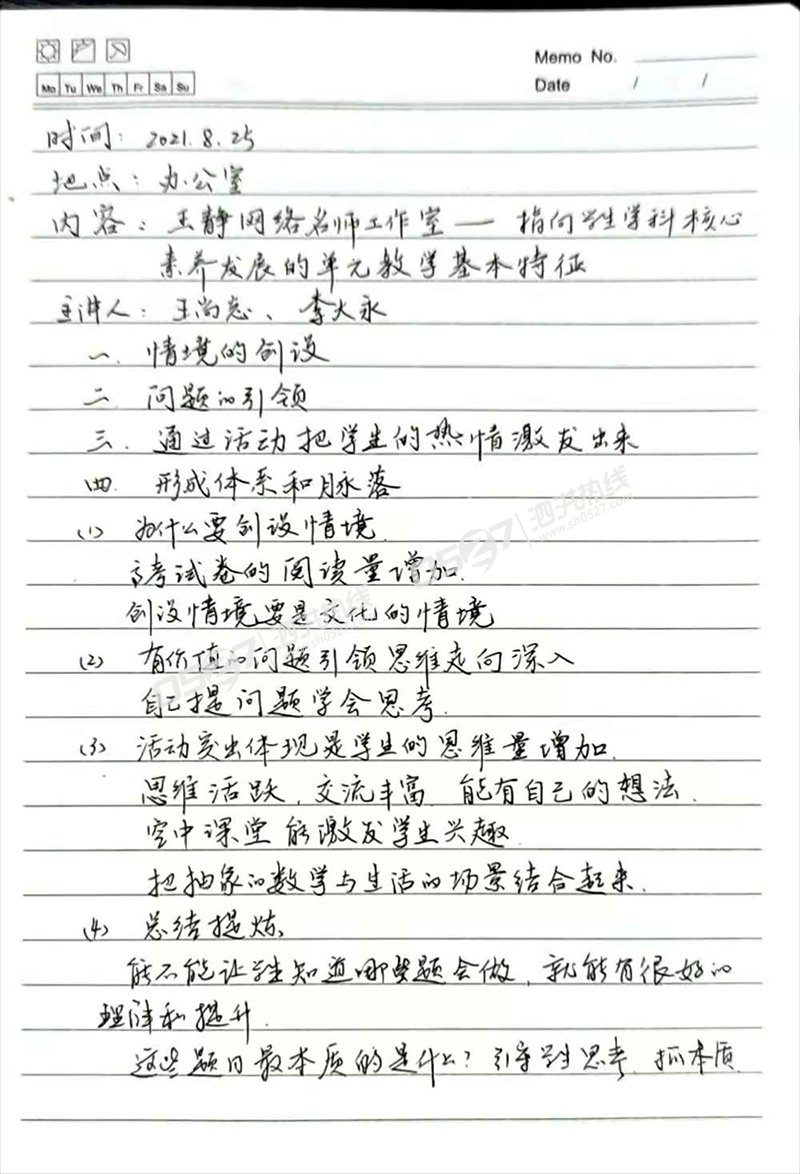 Memo No.
Mo Tu We Th Fr Sa Su
Date / /
时间：2021.8.25
地点：办公室
内容：王静网络名师工作室——指向学生学科核心
素养发展的单元教学基本特征
主讲人：王尚志、李大永
一、情境的创设
二、问题的引领
三、通过活动把学生的热情激发出来
四、形成体系和脉落
(1) 为什么要创设情境
高考试卷的阅读量增加.
创设情境要是文化的情境
(2) 有价值的问题引领思维走向深入
自己提问题学会思考.
(3) 活动突出体现是学生的思维量增加.
思维活跃，交流丰富，能有自己的想法.
空中课堂能激发学生兴趣
把抽象的数学与生活的场景结合起来.
(4) 总结提炼
能不能让学生知道哪些题会做，就能有很好的
理解和提升.
这些题目最本质的是什么？引导学生思考，抓本质.
0527泗洪热线
www.sh0527.com
0527泗洪热线